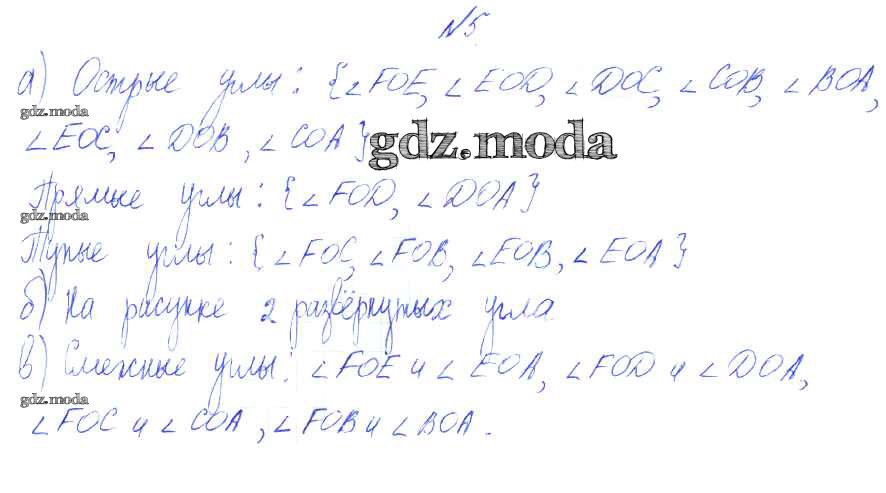 №5
а) Острые углы: {∠FOE, ∠EOD, ∠DOC, ∠COB, ∠BOA,
gdz.moda
∠EOC, ∠DOB, ∠COA}
gdz.moda
Прямые углы: {∠FOD, ∠DOA}
gdz.moda
Тупые углы: {∠FOC, ∠FOB, ∠EOB, ∠EOA}
б) На рисунке 2 развёрнутых угла
в) Смежные углы: ∠FOE и ∠EOA, ∠FOD и ∠DOA,
gdz.moda
∠FOC и ∠COA, ∠FOB и ∠BOA.